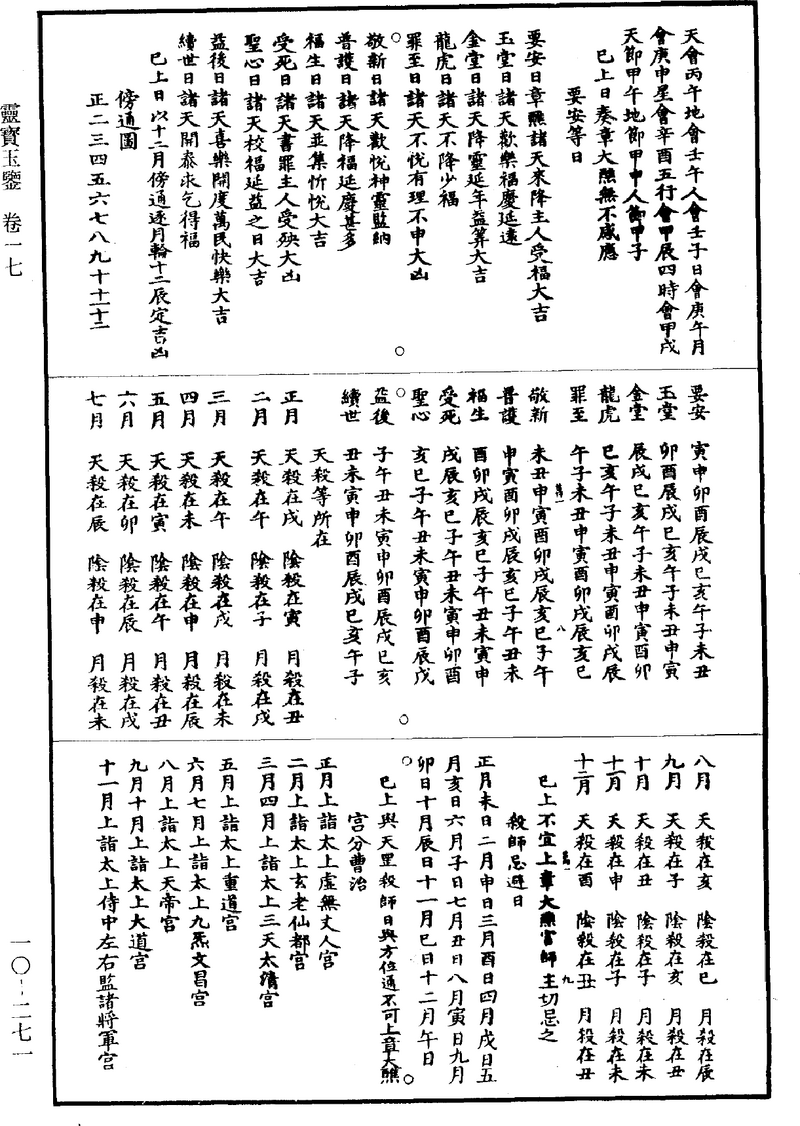 靈寶玉鑒 卷一七
一〇—二七一
天會丙午地會壬午人會壬子日會庚午月
會庚申星會辛酉五行會甲辰四時會甲戌
天節甲午地節甲申人節甲子
已上日奏章大醮無不感應
要安等日
要安日章醮諸天來降主人受福大吉
玉堂日諸天歡樂福慶延遠
金堂日諸天降靈延年益筭大吉
龍虎日諸天不降少福
罪至日諸天不悅有理不申大凶
敬新日諸天歡悅神靈監納
普護日諸天降福延慶甚多
福生日諸天並集忻悅大吉
受死日諸天書罪主人受殃大凶
聖心日諸天校福延益之日大吉
益後日諸天喜樂開度萬民快樂大吉
續世日諸天開泰求乞得福
已上日以十二月傍通逐月輪十二辰定吉凶
傍通圖
正二三四五六七八九十十一十二
要安 寅申卯酉辰戌巳亥午子未丑
玉堂 卯酉辰戌巳亥午子未丑申寅
金堂 辰戌巳亥午子未丑申寅酉卯
龍虎 巳亥午子未丑申寅酉卯戌辰
罪至 午子未丑申寅酉卯戌辰亥巳
敬新 未丑申寅酉卯戌辰亥巳子午
普護 申寅酉卯戌辰亥巳子午丑未
福生 酉卯戌辰亥巳子午丑未寅申
受死 戌辰亥巳子午丑未寅申卯酉
聖心 亥巳子午丑未寅申卯酉辰戌
益後 子午丑未寅申卯酉辰戌巳亥
續世 丑未寅申卯酉辰戌巳亥午子
天殺等所在
正月 天殺在戌 陰殺在寅 月殺在丑
二月 天殺在午 陰殺在子 月殺在戌
三月 天殺在午 陰殺在戌 月殺在未
四月 天殺在未 陰殺在申 月殺在辰
五月 天殺在寅 陰殺在午 月殺在丑
六月 天殺在卯 陰殺在辰 月殺在戌
七月 天殺在辰 陰殺在申 月殺在未
八月 天殺在亥 陰殺在巳 月殺在辰
九月 天殺在子 陰殺在亥 月殺在丑
十月 天殺在丑 陰殺在子 月殺在未
十一月 天殺在申 陰殺在子 月殺在未
十二月 天殺在酉 陰殺在丑 月殺在丑
已上不宜上章大醮富師主切忌之
殺師忌避日
正月未日二月申日三月酉日四月戌日五
月亥日六月子日七月丑日八月寅日九月
卯日十月辰日十一月巳日十二月午日
已上與天罡殺師日與方位通不可上章大醮
宮分曹治
正月上詣太上虛無丈人宮
二月上詣太上玄老仙都宮
三月四月上詣太上三天太清宮
五月上詣太上重道宮
六月七月上詣太上九炁文昌宮
八月上詣太上天帝宮
九月十月上詣太上大道宮
十一月上詣太上侍中左右監諸將軍宮